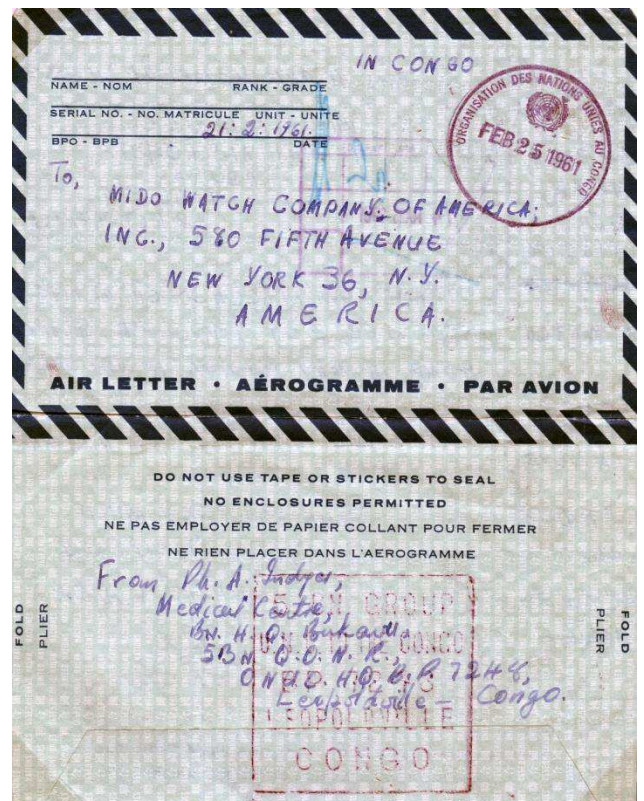 IN CONGO
NAME - NOM RANK - GRADE
SERIAL NO. - NO. MATRICULE UNIT - UNITE
21: 2: 1961.
BPO - BPB DATE
ORGANISATION DES NATIONS UNIES AU CONGO
FEB 25 1961
To,
MIDO WATCH COMPANY, OF AMERICA;
INC., 580 FIFTH AVENUE
NEW YORK 36, N.Y.
AMERICA.
AIR LETTER • AÉROGRAMME • PAR AVION
DO NOT USE TAPE OR STICKERS TO SEAL
NO ENCLOSURES PERMITTED
NE PAS EMPLOYER DE PAPIER COLLANT POUR FERMER
NE RIEN PLACER DANS L'AEROGRAMME
From Ph. A.
Medical Centre,
BN. H.Q. Bukavu,
5BN Q.O.N.R.,
O.N.U.C. H.Q. B.P. 7248,
Leopoldville - Congo.
GROUP
CONGO
LEOPOLDVILLE
CONGO
FOLD
PLIER
PLIER
FOLD